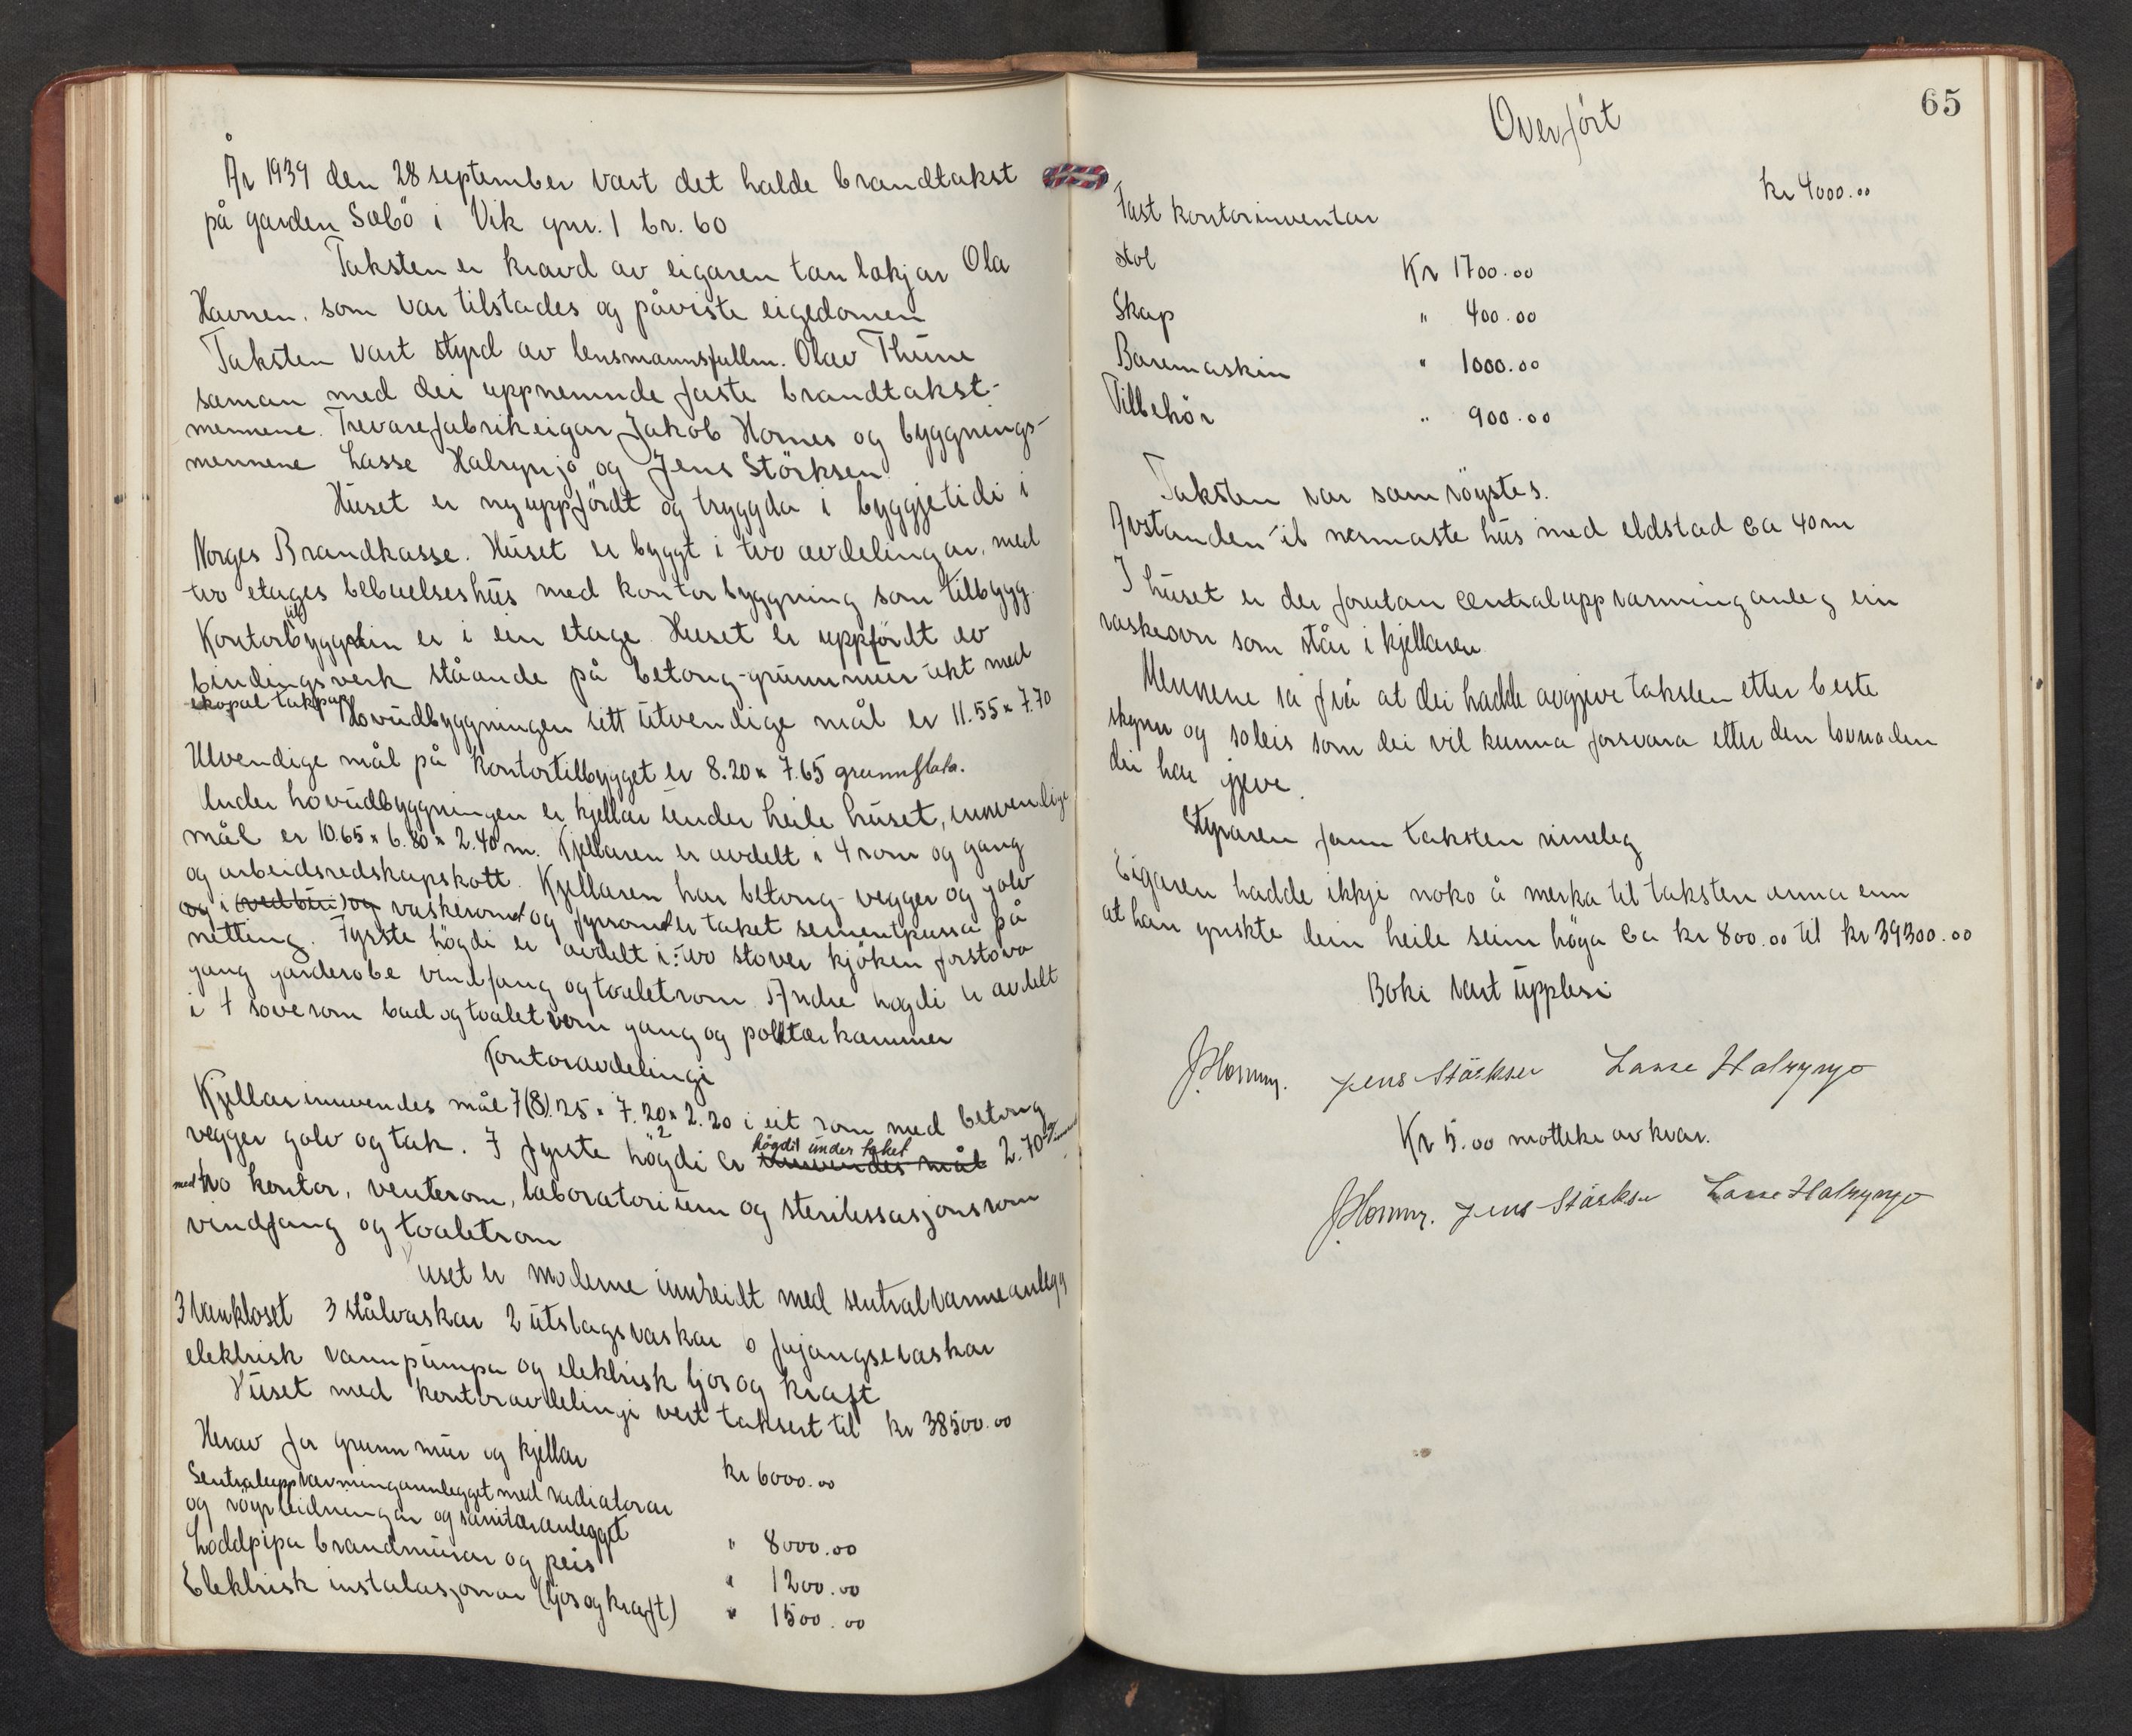 År 1939 den 28 september vart det halde brandtakst
på garden Sæbö i Vik gnr. 1 br. 60
Taksten er kravd av eigaren tanlækjar Ola
Havnen. som var tilstades og påviste eigedomen
Taksten vart styrd av lensmannsfullm. Olav Thune
saman med dei uppnemnde faste brandtakst-
mennene. Trevarefabrikeigar Jakob Hornes og byggnings-
mennene Lasse Halsynjo og Jens Störksen
Huset er ny uppfördt og tryggda i byggjetidi i
Norges Brandkasse. Huset er byggt i two avdelingar, med
two etages bebuelseshus med kontorbyggning som tilbygg.
Kontortilbyggdin er i ein etage. Huset er uppfördt av
bindingsverk ståande på betong-grunnmur tekt med
skopal takpap
Hovudbyggningen sitt utvendige mål er 11.55 x 7.70
Utvendige mål på kontortilbygget er 8.20 x 7.65 grunnflata.
Under hovudbyggningen er kjellar under heile huset, innvendige
mål er 10.65 x 6.80 x 2.40 m. Kjellaren er avdelt i 4 rom og gang
og arbeidsredskapskott. Kjellaren har betong-vegger og golv
og i (vedbu) og vaskerom og fyrrom er taket sementpussa på
netting. Fyrste högdi er avdelt i: two stover kjöken forstova
gang garderobe vindfang og toaletrom. Andre högdi er avdelt
i 4 soverom bad og toaletrom gang og polltærkammer
Kontoravdelingi
Kjellar innvendes mål 7(8).25 x 7.20 x 2.20 i eit rom med betong
vegger golv og tak. I fyrste högdi er innvendes mål högdi under taket 2.70
med two kontor, venterom, laboratorium og sterilessasjonsrom
vindfang og toaletrom
Huset er moderne innreidt med sentralvarmeanlegg
3 vannkloset 3 stålvaskar 2 utslagsvaskar 6 fajangsevaskar
elektrisk vannpumpa og elektrisk ljos og kraft
Huset med kontoravdelingi vert taksert til kr 38500.00
Herav for grunnmur og kjellar kr 6000.00
Sentraluppvarminganlegget med radiatorar
og röyrleidningar og sanitæranlegget " 8000.00
Loddpipa brandmurar og peis " 1200.00
Elektrisk instalasjonar (ljos og kraft) " 1500.00
65
Overfört
kr 4000.00
Fast kontorinventar
Stol Kr 1700.00
Skap " 400.00
Boremaskin " 1000.00
Tilbehör " 900.00
Taksten var samröystes.
Avstanden til nærmaste hus med eldstad ca 40 m
I huset er der forutan centraluppvarminganleg ein
vaskeovn som står i kjellaren
Mennene sa frå at dei hadde avgjeve taksten etter beste
skynn og soleis som dei vil kunna forsvara etter den lovnaden
dei har gjeve.
Styraren fann taksten rimeleg
Eigaren hadde ikkje noko å merka til taksten anna enn
at han ynskte dein heile seim höga ca kr 800.00 til kr 39300.00
Boki vart upplesi
JHornes. Jens Störksen Lasse Halsynjo
Kr 5.00 motteke av kvar.
JHornes. Jens Störksen Lasse Halsynjo